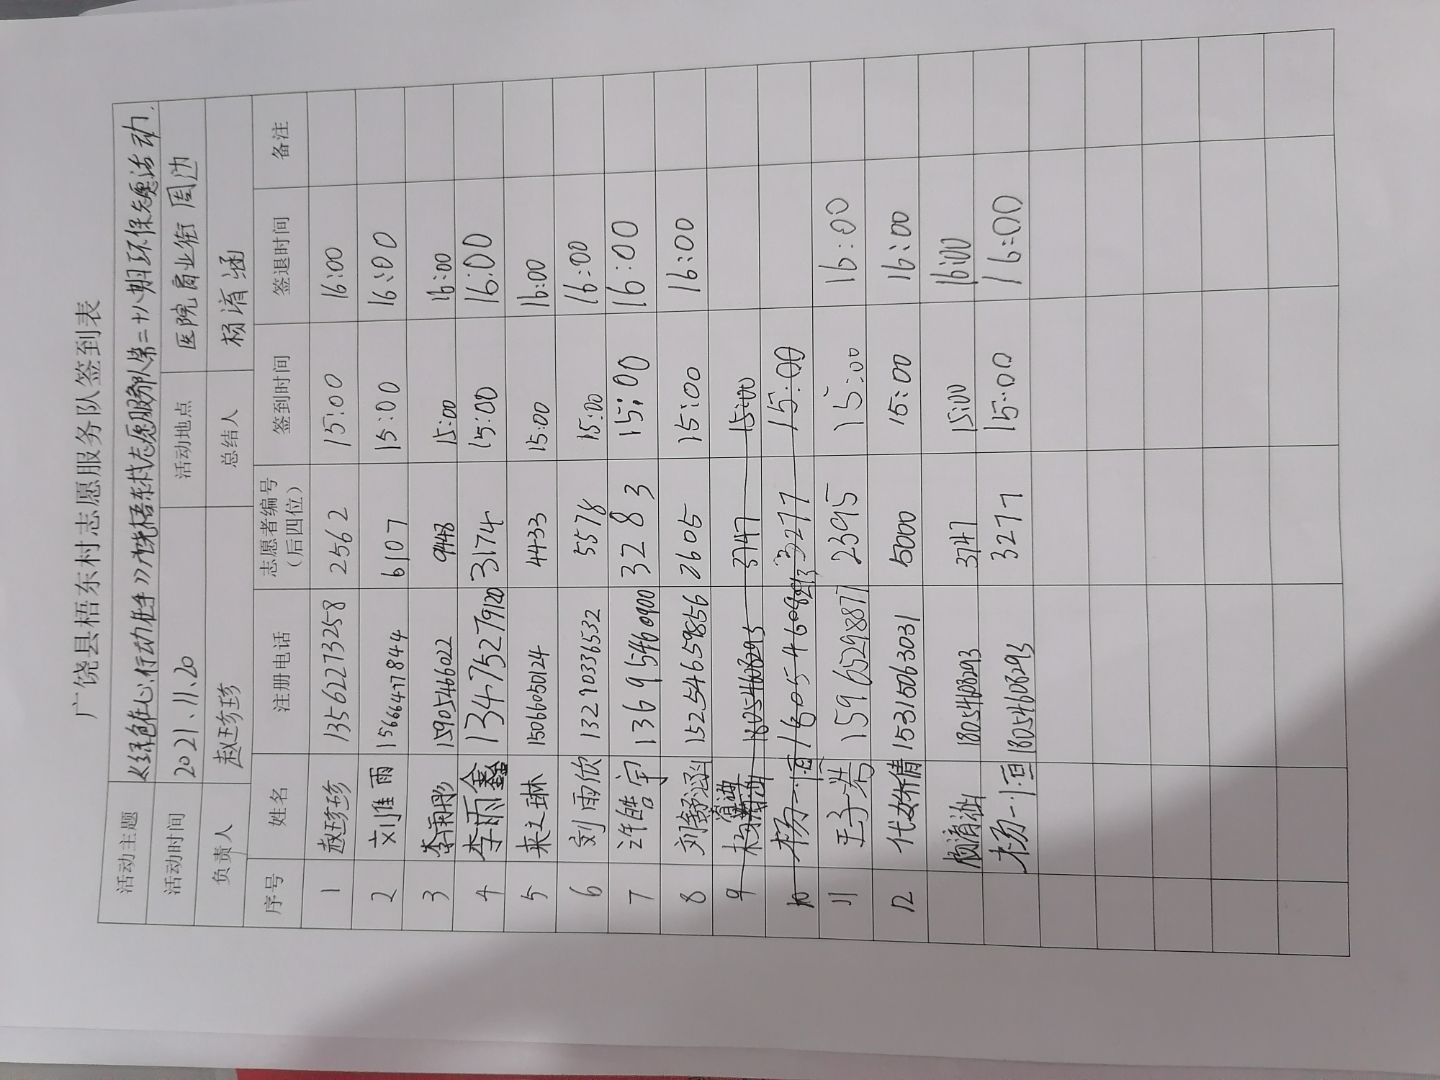 广饶县梧东村志愿服务队签到表
活动主题 《绿色在心,行动在手》广饶梧东村志愿服务队第二十八期环保志愿活动.
活动时间 2021.11.20 活动地点 医院商业街周边
负责人 赵珍珍 总结人 杨清涵
序号 姓名 注册电话 志愿者编号（后四位） 签到时间 签退时间 备注
1 赵珍珍 13562273258 2562 15:00 16:00
2 刘雅雨 15666477844 6107 15:00 16:00
3 李雨彤 15905466022 9448 15:00 16:00
4 李雨鑫 13475279120 3174 15:00 16:00
5 来文琳 15066050124 4433 15:00 16:00
6 刘雨欣 13290336532 5578 15:00 16:00
7 许皓宇 13695460900 3283 15:00 16:00
8 刘舒涵 15254659856 2605 15:00 16:00
9 3747 15:00
10 杨一恒 3277 15:00
11 王子 15965298877 2395 15:00 16:00
12 代女倩 15315063031 5000 15:00 16:00
18054608293 3747 15:00 16:00
杨一恒 18054608293 3277 15:00 16:00